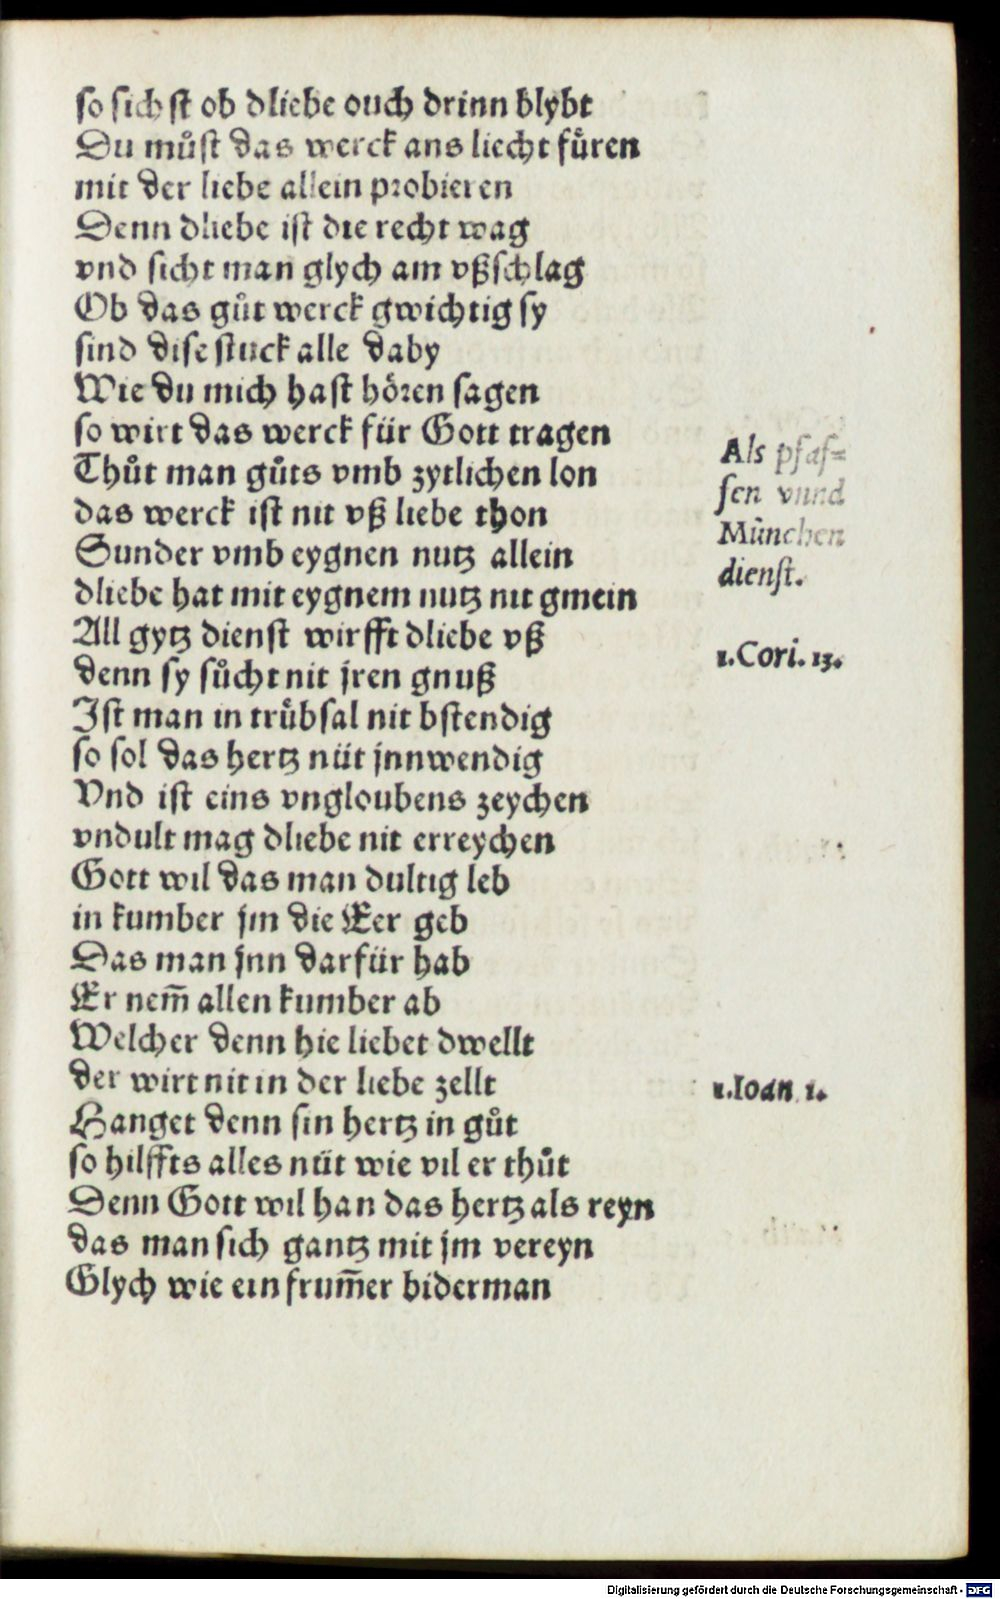 so sichst ob dliebe ouch drinn blybt
Du můst das werck ans liecht fůren
mit der liebe allein probieren
Denn dliebe ist die recht wag
vnd sicht man glych am vßschlag
Ob das gůt werck gwichtig sy
sind dise stuck alle daby
Wie du mich hast hören sagen
so wirt das werck für Gott tragen
Thůt man gůts vmb zytlichen lon
das werck ist nit vß liebe thon
Sunder vmb eygnen nutz allein
dliebe hat mit eygnem nutz nit gmein
All gytz dienst wirfft dliebe vß
denn sy sůcht nit jren gnuß
Ist man in trůbsal nit bstendig
so sol das hertz nüt jnnwendig
Vnd ist eins vngloubens zeychen
vndult mag dliebe nit erreychen
Gott wil das man dultig leb
in kumber jm die Eer geb
Das man jnn darfür hab
Er nem̃ allen kumber ab
Welcher denn hie liebet dwellt
der wirt nit in der liebe zellt
Hanget denn sin hertz in gůt
so hilffts alles nüt wie vil er thůt
Denn Gott wil han das hertz als reyn
das man sich gantz mit jm vereyn
Glych wie ein frum̃er biderman
Als pfaf=
fen vnnd
München
dienst.
1.Cori.13.
1.Ioan 1.
Digitalisierung gefördert durch die Deutsche Forschungsgemeinschaft - DFG